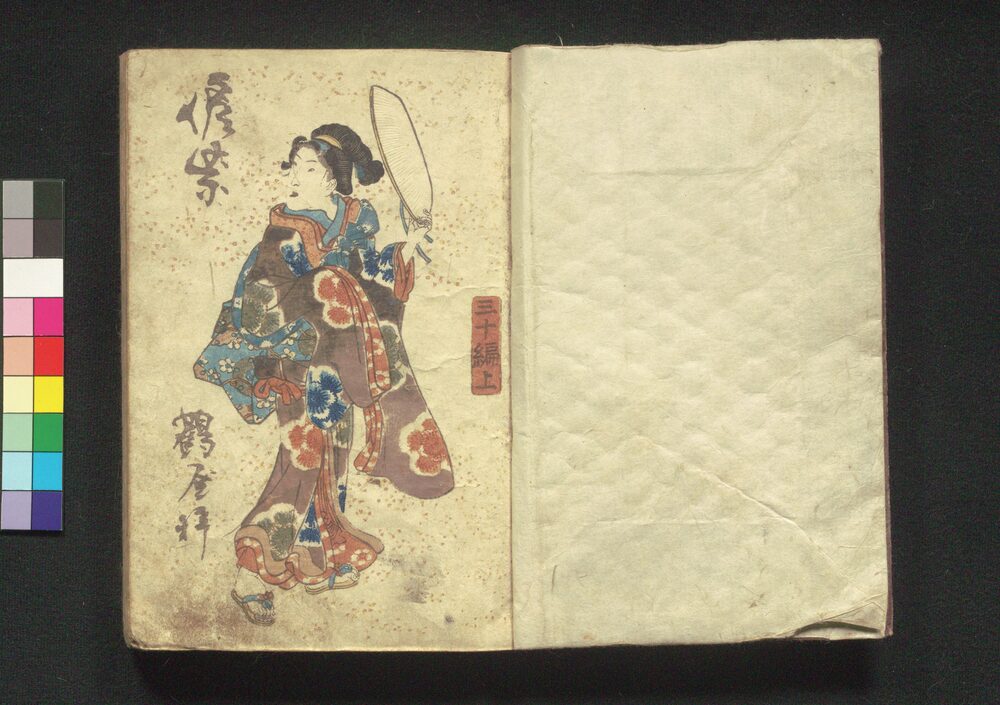 三十編上
偐紫
鶴屋梓